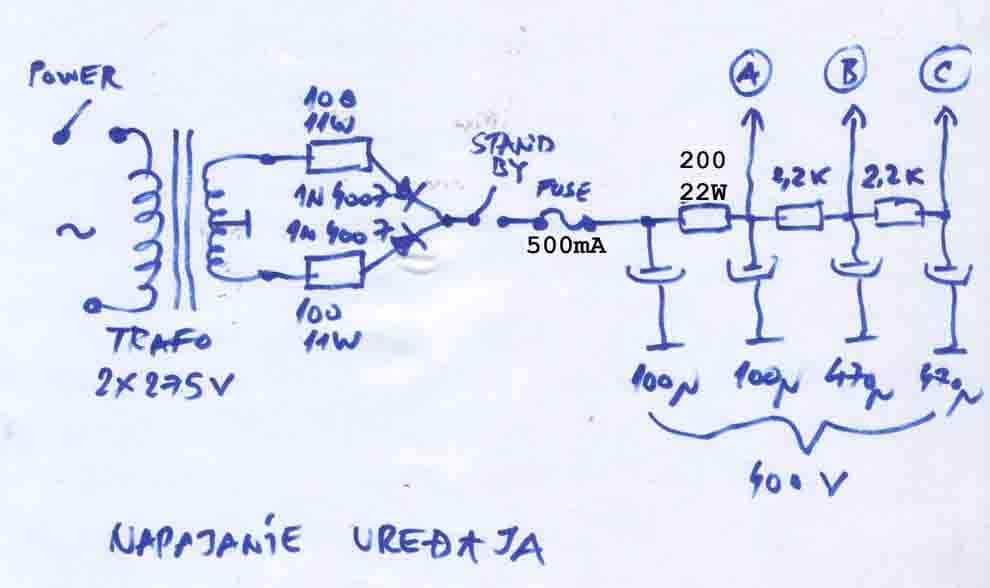 POWER
~
TRAFO
2X275V
100
11W
1N4007
1N4007
100
11W
STAND
BY
FUSE
500mA
A
B
C
200
22W
2,2K
2,2K
100μ
100μ
470μ
470μ
400 V
NAPAJANJE UREĐAJA